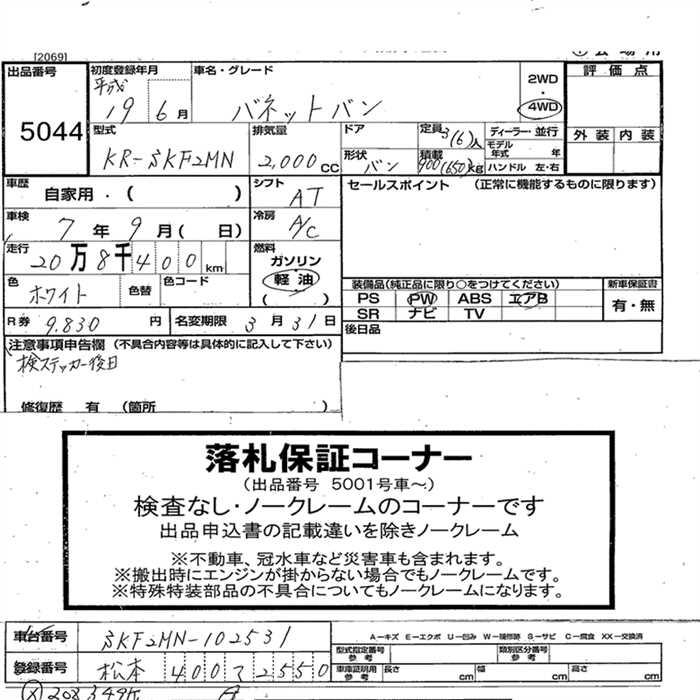 [2069]
出品番号 初度登録年月 車名・グレード 2WD 評価点
平成 19 6月 バネットバン 4WD
5044 型式 排気量 ドア 定員 3(6)人 ディーラー・並行 外装 内装
モデル年式 年
KR-SKF2MN 2,000cc 形状 バン 積載 900(650)kg ハンドル 左・右
車歴 自家用・( ) シフト AT セールスポイント (正常に機能するものに限ります)
車検 7年9月( 日) 冷房 A/C
走行 20万8千400km 燃料 ガソリン
軽油
色 ホワイト 色替 色コード ( ) 装備品(純正品に限り○をつけてください) 新車保証書
PS PW ABS エアB 有・無
R券 9,830円 名変期限 3月31日 SR ナビ TV
注意事項申告欄 (不具合内容等は具体的に記入して下さい) 後日品
検ステッカー後日
修復歴 有 (箇所 )
落札保証コーナー
(出品番号 5001号車~)
検査なし・ノークレームのコーナーです
出品申込書の記載違いを除きノークレーム
※不動車、冠水車など災害車も含まれます。
※搬出時にエンジンが掛からない場合でもノークレームです。
※特殊特装部品の不具合についてもノークレームになります。
A-キズ E-エクボ U-凹み W-補修跡 S-サビ C-腐食 XX-交換済
車台番号 SKF2MN-102531 型式指定番号 参考 類別区分番号 参考
登録番号 松本 400 す 2550 車庫証明用 参考 長さ cm 幅 cm 高さ cm